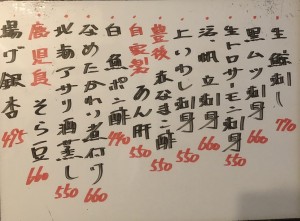 生鯨刺し 770
黒ムツ刺身 660
生トロサーモン刺身 550
活帆立刺身 660
上いわし刺身 550
豊後赤なまこ酢 550
自家製あん肝 550
白魚ポン酢 440
なめたかれい煮付け 660
北海アサリ酒蒸し 550
鹿児島そら豆 660
揚げ銀杏 495